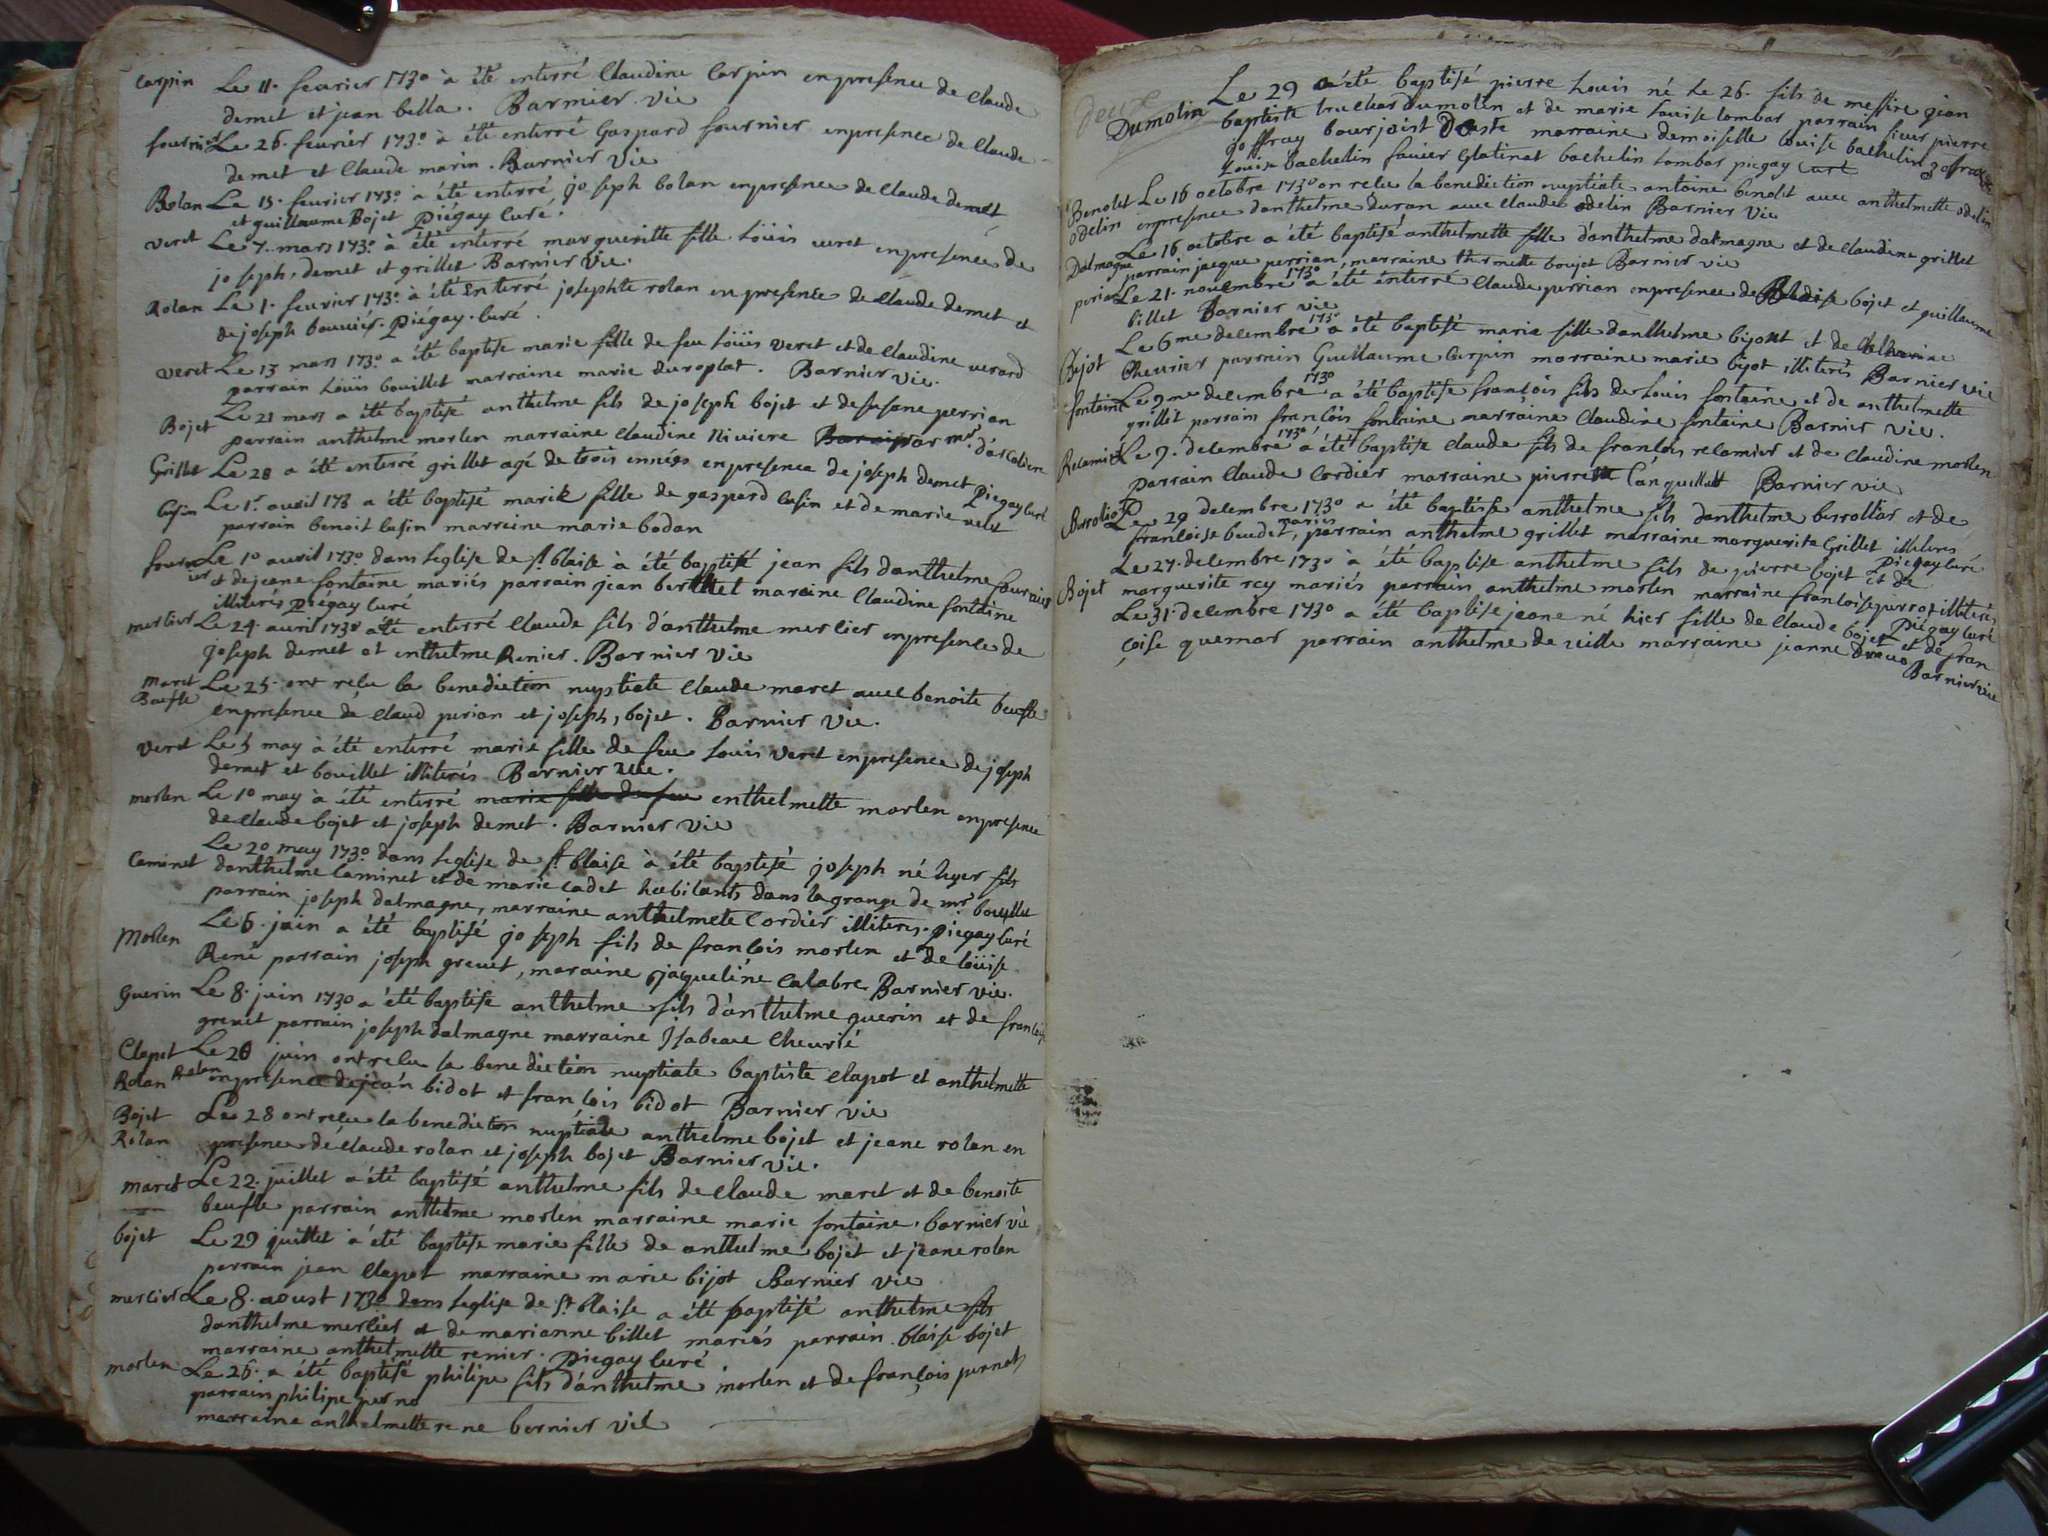 Carpin Le 11. fevrier 1730 à été enterré Claudine Carpin enpresence de Claude
demet et jean bella. Barnier vic
fournier Le 26. fevrier 1730 à été enterré Gaspard fournier enpresence de Claude
demet et Claude marin. Barnier Vic
Rolan Le 15. fevrier 1730 à été enterré joseph rolan enpresence de Claude demet
et guillaume Bojet Piégay Curé.
veret Le 7. mars 1730 à été enterré margueritte fille Loüis veret enpresence de
joseph, demet et grillet Barnier Vic.
Rolan Le 1. fevrier 1730 à été enterré josephte rolan enpresence de Claude demet et
de joseph bouvier. Piégay. Curé.
veret Le 13 mars 1730 a été baptise marie fille de feu Loüis veret et de Claudine verard
parrain Loüis bouillet marraine marie duroplat. Barnier vic.
Bojet Le 21 mars a été baptisé anthelme fils de joseph bojet et de susane perrion
parrain anthelme morlen marraine Claudine Riviere par mr. d'arcolien
Grillet Le 28 a été enterré grillet agé de trois ennéés enpresence de joseph demet Piegay curé
Casin Le 1r. avril 173 a été baptisé marie fille de gaspard casin et de marie velet
parrain benoit casin marreine marie bodan
fournier Le 10 avril 1730 dans leglise de st. blaise à été baptisé jean fils danthelme fournier
et de jeane fontaine mariés parrain jean berthet maraine Claudine fontaine
illiterés Piégay Curé
mercier Le 24. avril 1730 a été enterré Claude fils d'anthelme mercier enpresence de
joseph demet et enthelme Renier. Barnier Vic
maret Le 25. ont relu la benediction nuptiale Claude maret avec benoite beufle
Baufle enpresence de Claud perion et joseph, bojet. Barnier Vic.
veret Le 5 may à été enterré marie fille de feu Louis veret enpresence de joseph
demet et bouillet illiterés Barnier vic.
morlen Le 10 may à été enterré marie fille de feu enthelmette morlen enpresence
de Claude bojet et joseph demet. Barnier vic
Le 20 may 1730 dans leglise de st. blaise à été baptisé joseph né hyer fils
Caminet danthelme Caminet et de marie cadet habitants dans la grange de mr. bouyllet
parrain joseph dalmagne, marraine anthelmete Cordier illiteres. piegay Curé
Morlen Le 6. juin a été baptisé joseph fils de francois morlen et de loüise
René parrain joseph grevet, maraine jaqueline calabre. Barnier vic.
Guerin Le 8. juin 1730 a été baptise anthelme fils d'anthelme guerin et de francoise
grevet parrain joseph dalmagne marraine Isabeau Chevrié
Clapot Le 26 juin ont relu la benediction nuptiale baptiste clapot et anthelmette
Rolan Rolan enpresence de jean bidot et francois bidot Barnier vic
Bojet Le 28 ont relu la benediction nuptiale anthelme bojet et jeane rolan en
Rolan presence de Claude rolan et joseph bojet Barnier vic.
maret Le 22. juillet a été baptisé anthelme fils de Claude maret et de benoite
beufle parrain anthelme morlen marraine marie fontaine. barnier vic
bojet Le 29 juillet à été baptise marie fille de anthelme bojet et jeane rolen
perrain jean Clapot marraine marie bijot Barnier vic
mercier Le 8. aoust 1730 dans leglise de st. blaise a été baptisé anthelme fils
danthelme mercier et de marianne billet mariés parrain blaise bojet
marraine anthelmette renier. Piegay curé
morlen Le 26. a été baptisé philipe fils d'anthelme morlen et de françois pernet
parrain philipe perno
marraine anthelmette rene bernier vic
Le 29 a été baptisé pierre Louis né le 26. fils de messire jean
Dumolin baptiste truchar Dumolin et de marie Louise lombar parrain sieur pierre
goffray bourjoist Daoste marraine demoiselle Louise bachelin goffray
Louise bachelin favier glatinat bachelin Lombar piegay curé
Benolet Le 16 octobre 1730 on relu la benediction nuptiale antoine benolet avec anthelmette odelin
odelin enpresence danthelme duran avec Claude odelin Barnier Vic
Le 16 octobre a été baptisé anthelmette fille d'anthelme dalmagne et de claudine grillet
Dalmagne parrain jacque perrian, marraine thermette boujet Barnier vic
perian Le 21. novembre 1730 a été enterré Claude perrian enpresence de Blaise bojet et guillaume
billet Barnier vic
Le 6me decembre 1730 a été baptisé marie fille danthelme bijout et de Catherine
Bijot Chevrier parrain Guillaume Carpin marraine marie bijot illiterés Barnier vic
fontaine Le 9me decembre 1730 a été baptisé françois fils de Louis fontaine et de anthelmette
grillet parrain françois fontaine marraine Claudine fontaine Barnier vic.
Recamier Le 9. decembre 1730 a été baptise claude fils de francois recamier et de Claudine morlen
parrain Claude Cordier marraine pierrette Canquillet Barnier vic
Le 29 decembre 1730 a été baptise anthelme fils danthelme berrollior et de
francoise beudet, mariés parrain anthelme grillet marraine marguerite Grillet illiterés
Piegay curé
Le 27. decembre 1730 à été baptise anthelme fils de pierre bojet et de
Bojet marguerite rey mariés parrain anthelme morlen marraine francoise perrot illiterés
Piégay curé
Le 31. decembre 1730 a été baptise jeane né hier fille de Claude bojet et de fran
çoise quemar parrain anthelme de ville marraine jeanne
Barnier vic